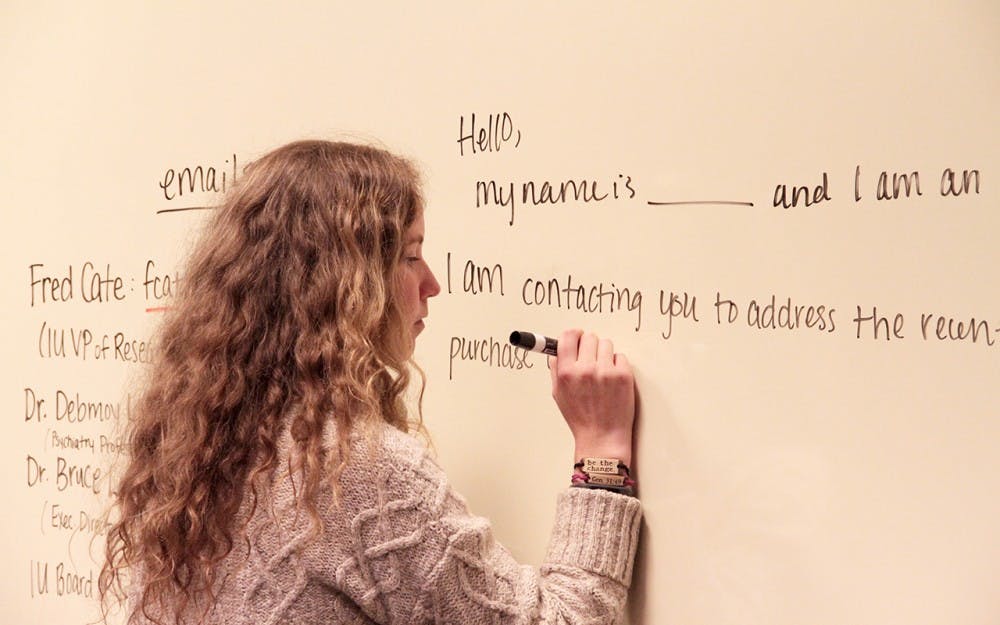 email
Fred Cate: fcat
(IU VP of Resea
Dr. Debmoy
(Psychiatry Profe
Dr. Bruce
(Exec. Direc
IU Board
Hello,
my name is ______ and I am an
I am contacting you to address the recent
purchase
be the
change.
Gen 31:49